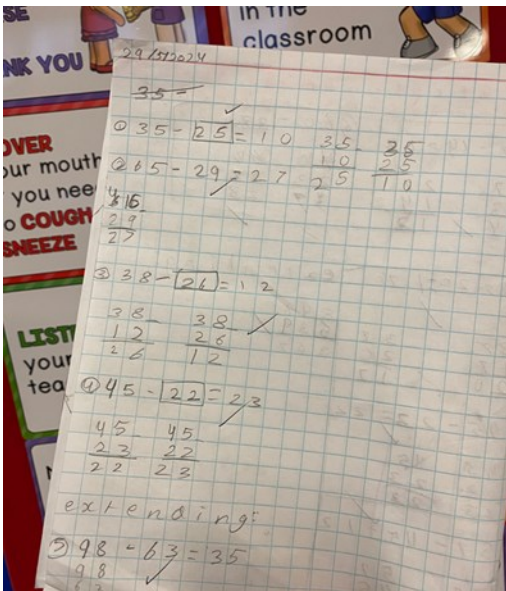 SE
NK YOU
in the
classroom
OVER
our mouth
you nee
o COUGH
SNEEZE
LIST
your
tea
29/5/2024
35 -
① 35 - 25 = 10
35 - 35
10 25
25 10
② 65 - 29 = 27
29
27
③ 38 - 26 = 12
38 - 38
12 26
26 12
④ 45 - 22 = 23
45 - 45
23 22
22 23
extending:
⑤ 98 - 63 = 35
98
63